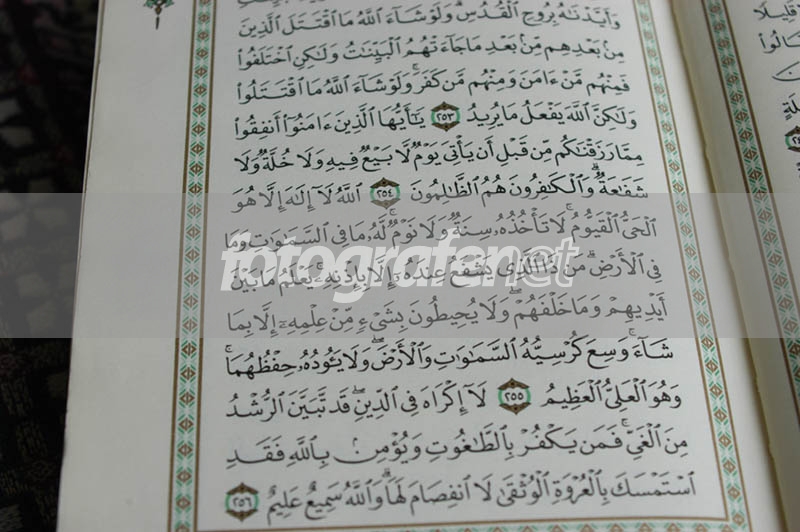 وَأَيَّدْنَٰهُ بِرُوحِ ٱلْقُدُسِ وَلَوْ شَآءَ ٱللَّهُ مَا ٱقْتَتَلَ ٱلَّذِينَ
مِنۢ بَعْدِهِم مِّنۢ بَعْدِ مَا جَآءَتْهُمُ ٱلْبَيِّنَٰتُ وَلَٰكِنِ ٱخْتَلَفُوا۟
فَمِنْهُم مَّنْ ءَامَنَ وَمِنْهُم مَّن كَفَرَ ۚ وَلَوْ شَآءَ ٱللَّهُ مَا ٱقْتَتَلُوا۟
وَلَٰكِنَّ ٱللَّهَ يَفْعَلُ مَا يُرِيدُ ٢٥٣ يَٰٓأَيُّهَا ٱلَّذِينَ ءَامَنُوٓا۟ أَنفِقُوا۟
مِمَّا رَزَقْنَٰكُم مِّن قَبْلِ أَن يَأْتِىَ يَوْمٌ لَّا بَيْعٌ فِيهِ وَلَا خُلَّةٌ وَلَا
شَفَٰعَةٌ ۗ وَٱلْكَٰفِرُونَ هُمُ ٱلظَّٰلِمُونَ ٢٥٤ ٱللَّهُ لَآ إِلَٰهَ إِلَّا هُوَ
ٱلْحَىُّ ٱلْقَيُّومُ ۚ لَا تَأْخُذُهُۥ سِنَةٌ وَلَا نَوْمٌ ۚ لَّهُۥ مَا فِى ٱلسَّمَٰوَٰتِ وَمَا
فِى ٱلْأَرْضِ ۗ مَن ذَا ٱلَّذِى يَشْفَعُ عِندَهُۥٓ إِلَّا بِإِذْنِهِۦ ۚ يَعْلَمُ مَا بَيْنَ
أَيْدِيهِمْ وَمَا خَلْفَهُمْ ۖ وَلَا يُحِيطُونَ بِشَىْءٍ مِّنْ عِلْمِهِۦٓ إِلَّا بِمَا
شَآءَ ۚ وَسِعَ كُرْسِيُّهُ ٱلسَّمَٰوَٰتِ وَٱلْأَرْضَ ۖ وَلَا يَـُٔودُهُۥ حِفْظُهُمَا ۚ
وَهُوَ ٱلْعَلِىُّ ٱلْعَظِيمُ ٢٥٥ لَآ إِكْرَاهَ فِى ٱلدِّينِ ۖ قَد تَّبَيَّنَ ٱلرُّشْدُ
مِنَ ٱلْغَىِّ ۚ فَمَن يَكْفُرْ بِٱلطَّٰغُوتِ وَيُؤْمِنۢ بِٱللَّهِ فَقَدِ
ٱسْتَمْسَكَ بِٱلْعُرْوَةِ ٱلْوُثْقَىٰ لَا ٱنفِصَامَ لَهَا ۗ وَٱللَّهُ سَمِيعٌ عَلِيمٌ ٢٥٦
fotografe.net